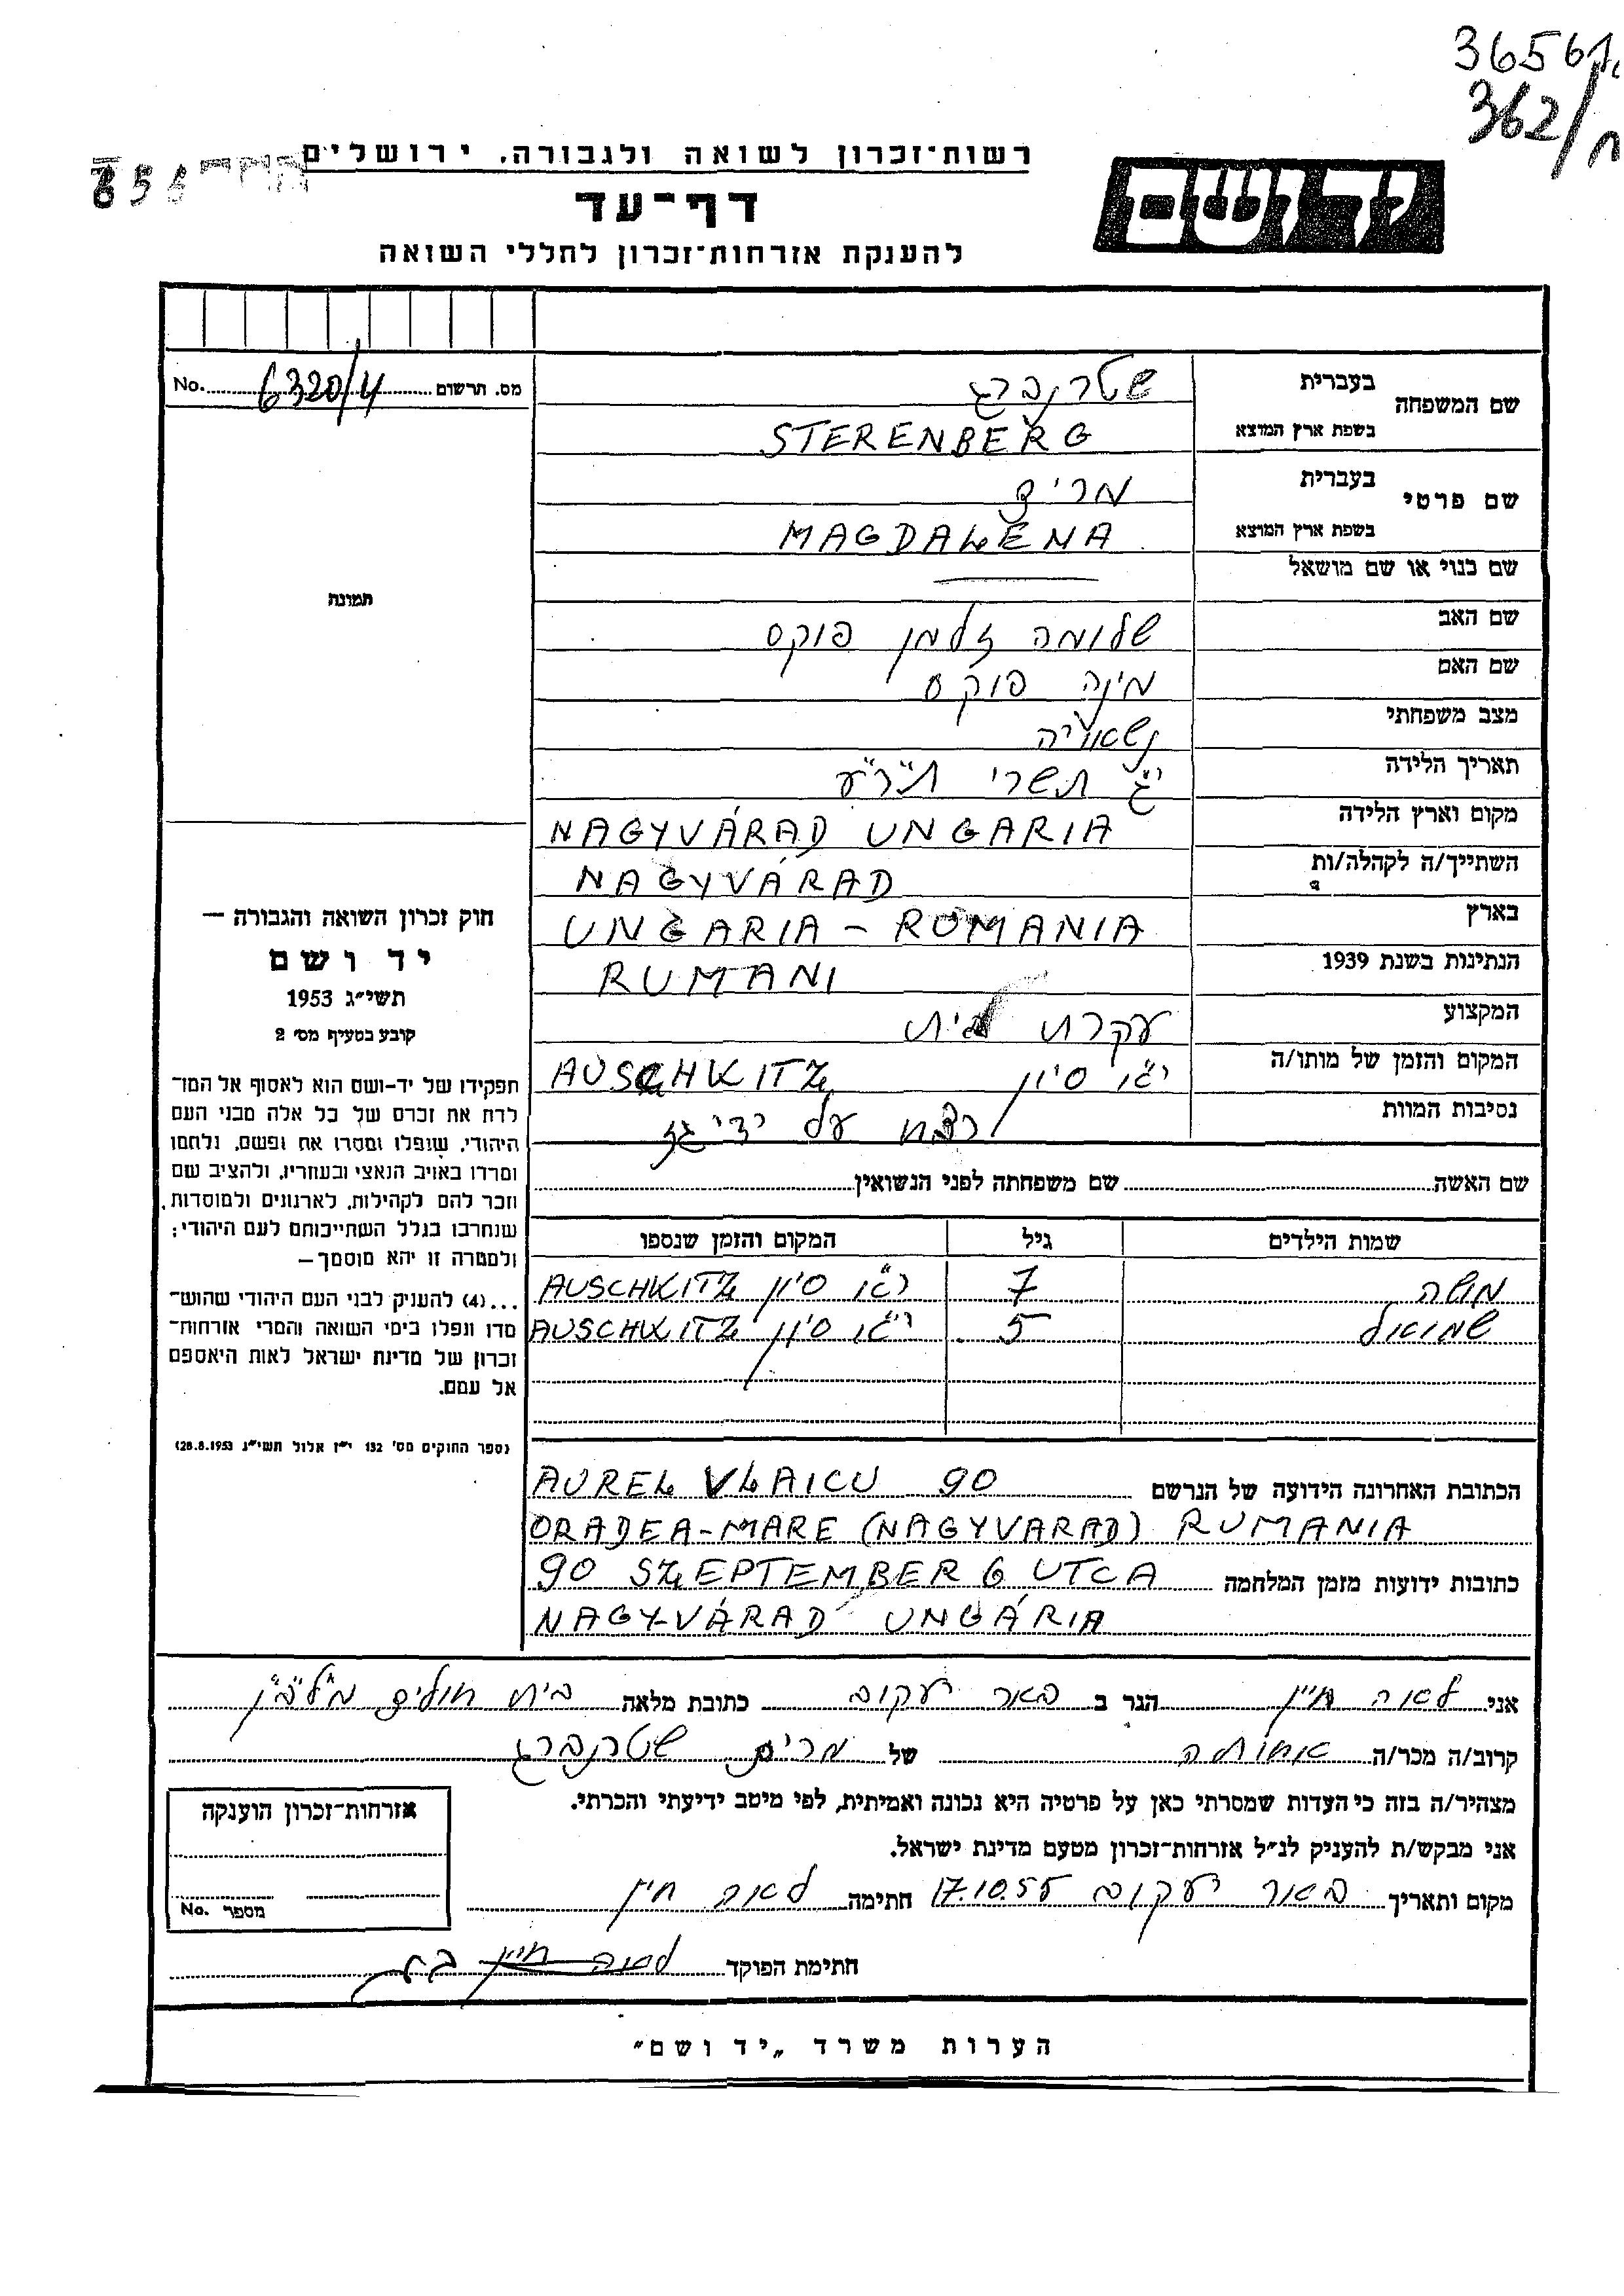 36561
362/ח
רשות־זכרון לשואה ולגבורה, ירושלים
דף־עד
להענקת אזרחות־זכרון לחללי השואה
יד ושם
מס. תרשום 6320/4 No.
שם המשפחה בעברית שטרנברג
בשפת ארץ המוצא STERENBERG
שם פרטי בעברית מרים
בשפת ארץ המוצא MAGDALENA
שם כנוי או שם מושאל
שם האב שלומה זלמן פוקס
שם האם מינה פוקס
מצב משפחתי נשואיה
תאריך הלידה י"ג תשרי תר"ע
מקום וארץ הלידה NAGYVÁRAD UNGARIA
השתייך/ה לקהלה/ות NAGYVÁRAD
בארץ UNGARIA - ROMANIA
הנתינות בשנת 1939 RUMANI
המקצוע עקרת בית
המקום והזמן של מותו/ה סיון AUSCHWITZ
נסיבות המוות על ידי גז
תמונה
חוק זכרון השואה והגבורה —
יד ושם
תשי״ג 1953
קובע בסעיף מס׳ 2
תפקידו של יד-ושם הוא לאסוף אל המו־
לדת את זכרם של כל אלה מבני העם
היהודי, שנפלו ומסרו את נפשם, נלחמו
ומרדו באויב הנאצי ובעוזריו, ולהציב שם
וזכר להם לקהילות, לארגונים ולמוסדות,
שנחרבו בגלל השתייכותם לעם היהודי;
ולמטרה זו יהא מוסמך—
...(4) להעניק לבני העם היהודי שהוש־
מדו ונפלו בימי השואה והמרי אזרחות־
זכרון של מדינת ישראל לאות היאספם
אל עמם.
(ספר החוקים מס׳ 132 י״ז אלול תשי״ג 28.8.1953)
שם האשה שם משפחתה לפני הנשואין
שמות הילדים גיל המקום והזמן שנספו
משה 7 סיון AUSCHWITZ
שמואל 5 סיון AUSCHWITZ
הכתובת האחרונה הידועה של הנרשם AUREL VLAICU 90
ORADEA-MARE (NAGYVARAD) RUMANIA
כתובות ידועות מזמן המלחמה 90 SZEPTEMBER 6 UTCA
NAGYVÁRAD UNGÁRIA
אני לאה חיין הגר ב באר יעקוב כתובת מלאה בית חולים מלב"ן
קרוב/ה מכר/ה אחותה של מרים שטרנברג
מצהיר/ה בזה כי העדות שמסרתי כאן על פרטיה היא נכונה ואמיתית, לפי מיטב ידיעתי והכרתי.
אני מבקש/ת להעניק לנ״ל אזרחות־זכרון מטעם מדינת ישראל.
מקום ותאריך באר יעקוב 17.10.55 חתימה לאה חיין
אזרחות־זכרון הוענקה
מספר No.
חתימת הפוקד לאה חיין
הערות משרד „יד ושם״